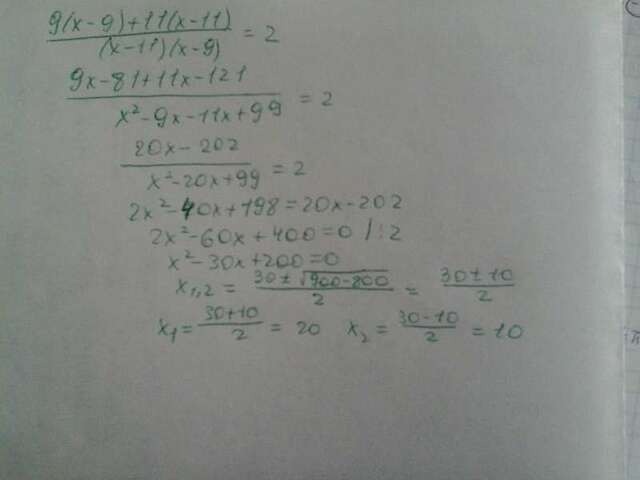 9(x-9)+11(x-11)/(x-11)(x-9) = 2
9x-81+11x-121/x²-9x-11x+99 = 2
20x-202/x²-20x+99 = 2
2x²-40x+198=20x-202
2x²-60x+400=0 /:2
x²-30x+200=0
x₁,₂ = 30±√900-800/2 = 30±10/2
x₁ = 30+10/2 = 20 x₂ = 30-10/2 = 10